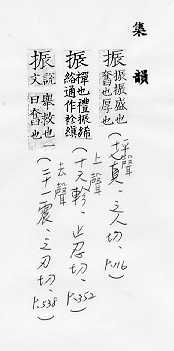 集韻
振 振振盛也
奮也厚也
平聲
(十七真、之人切、P.116)
振 襌也禮振絺
綌通作袗縝
上聲
(十六軫、止忍切、P.352)
振 說文 舉救也一
曰奮也
去聲
(二十一震、之刃切、P.538)